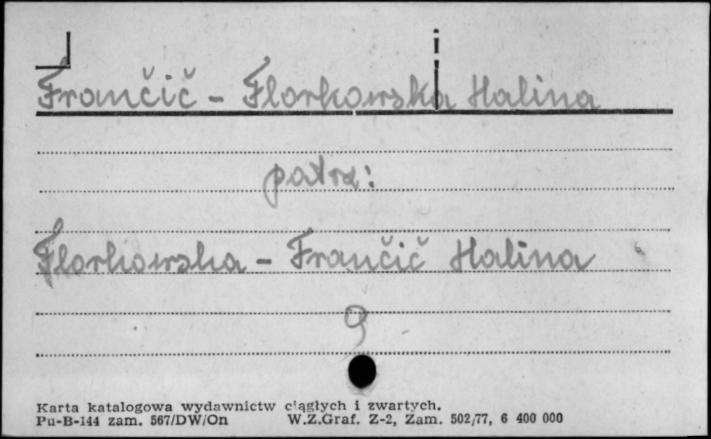 i
Frančić - Florkowska Halina
patrz:
Florkowska - Frančić Halina
9
Karta katalogowa wydawnictw ciągłych i zwartych.
Pu-B-144 zam. 567/DW/On W.Z.Graf. Z-2, Zam. 502/77, 6 400 000